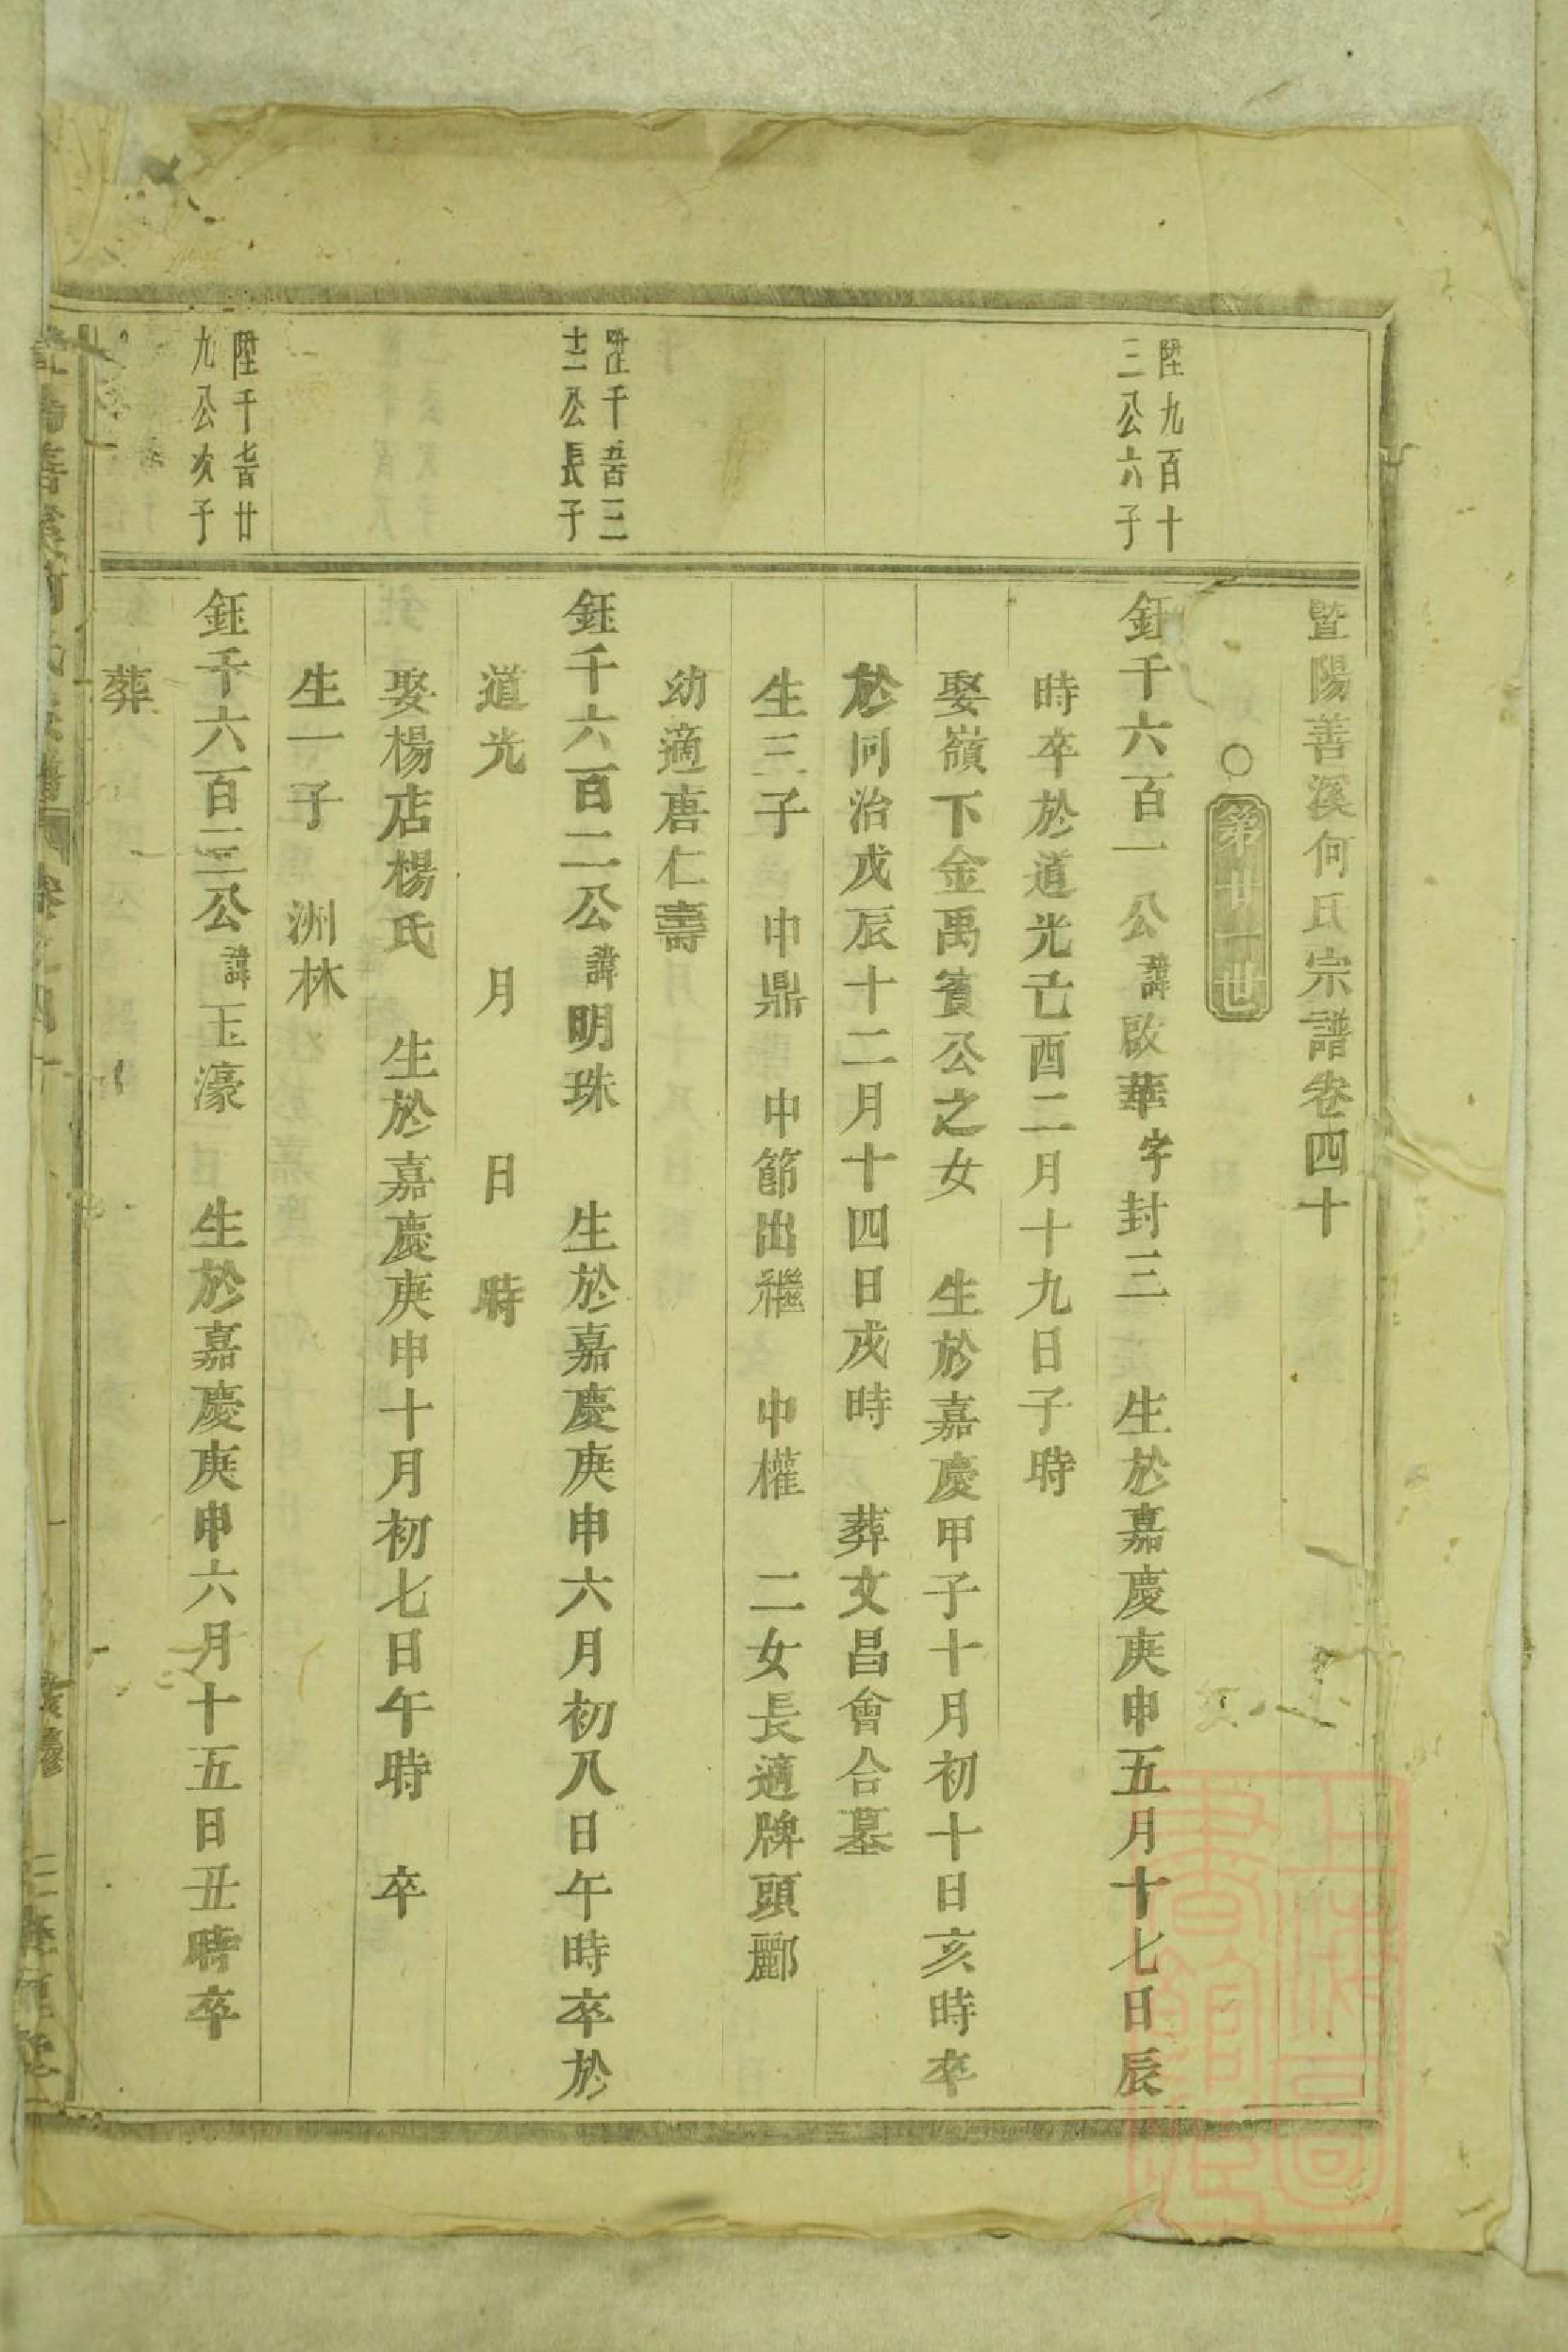 暨陽善溪何氏宗譜卷四十
○第廿一世
陞九百十
三公六子
鈺千六百一公諱啟華字封三 生於嘉慶庚申五月十七日辰
時卒於道光己酉二月十九日子時
娶嶺下金禹賓公之女 生於嘉慶甲子十月初十日亥時卒
於同治戊辰十二月十四日戌時 葬文昌會合墓
生三子 中鼎 中節出繼 中權 二女長適牌頭酈
幼適唐仁壽
陞千五百三
十二公長子
鈺千六百二公諱明珠 生於嘉慶庚申六月初八日午時卒於
道光 月 日 時
娶楊店楊氏 生於嘉慶庚申十月初七日午時 卒
生一子 洲林
陞千七百廿
九公次子
鈺千六百三公諱玉濠 生於嘉慶庚申六月十五日丑時卒
葬